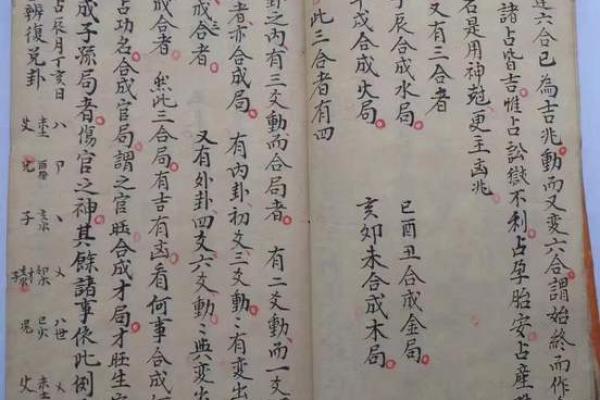 六合已為吉兆動而又變六合謂始終而作
諸占皆吉惟占訟獄不利占孕胎安占產
若是用神尅更主凶兆
又有三合者
子辰合成水局 巳酉丑合成金局
午戌合成火局 亥卯未合成木局
此三合者有四
卦之內有三爻動而合局者 有二爻動而一爻
者亦合成局 有內卦初爻三爻動〻有變出
成合者 又有外卦四爻六爻動〻與變出
成合者 然此三合局有吉有凶看何事合成何
占功名合成官局謂之官旺合成才局才旺生官
成子孫局者傷官之神其餘諸事依此例
占辰月丁亥日
辨復兌卦